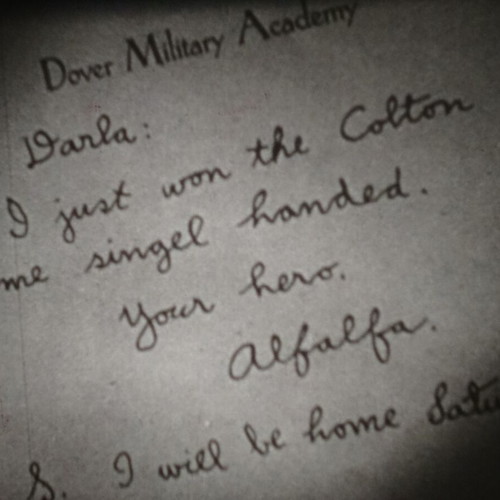 Dover Military Academy
Darla:
I just won the Colton
me singel handed.
Your hero.
Alfalfa.
S. I will be home Satu